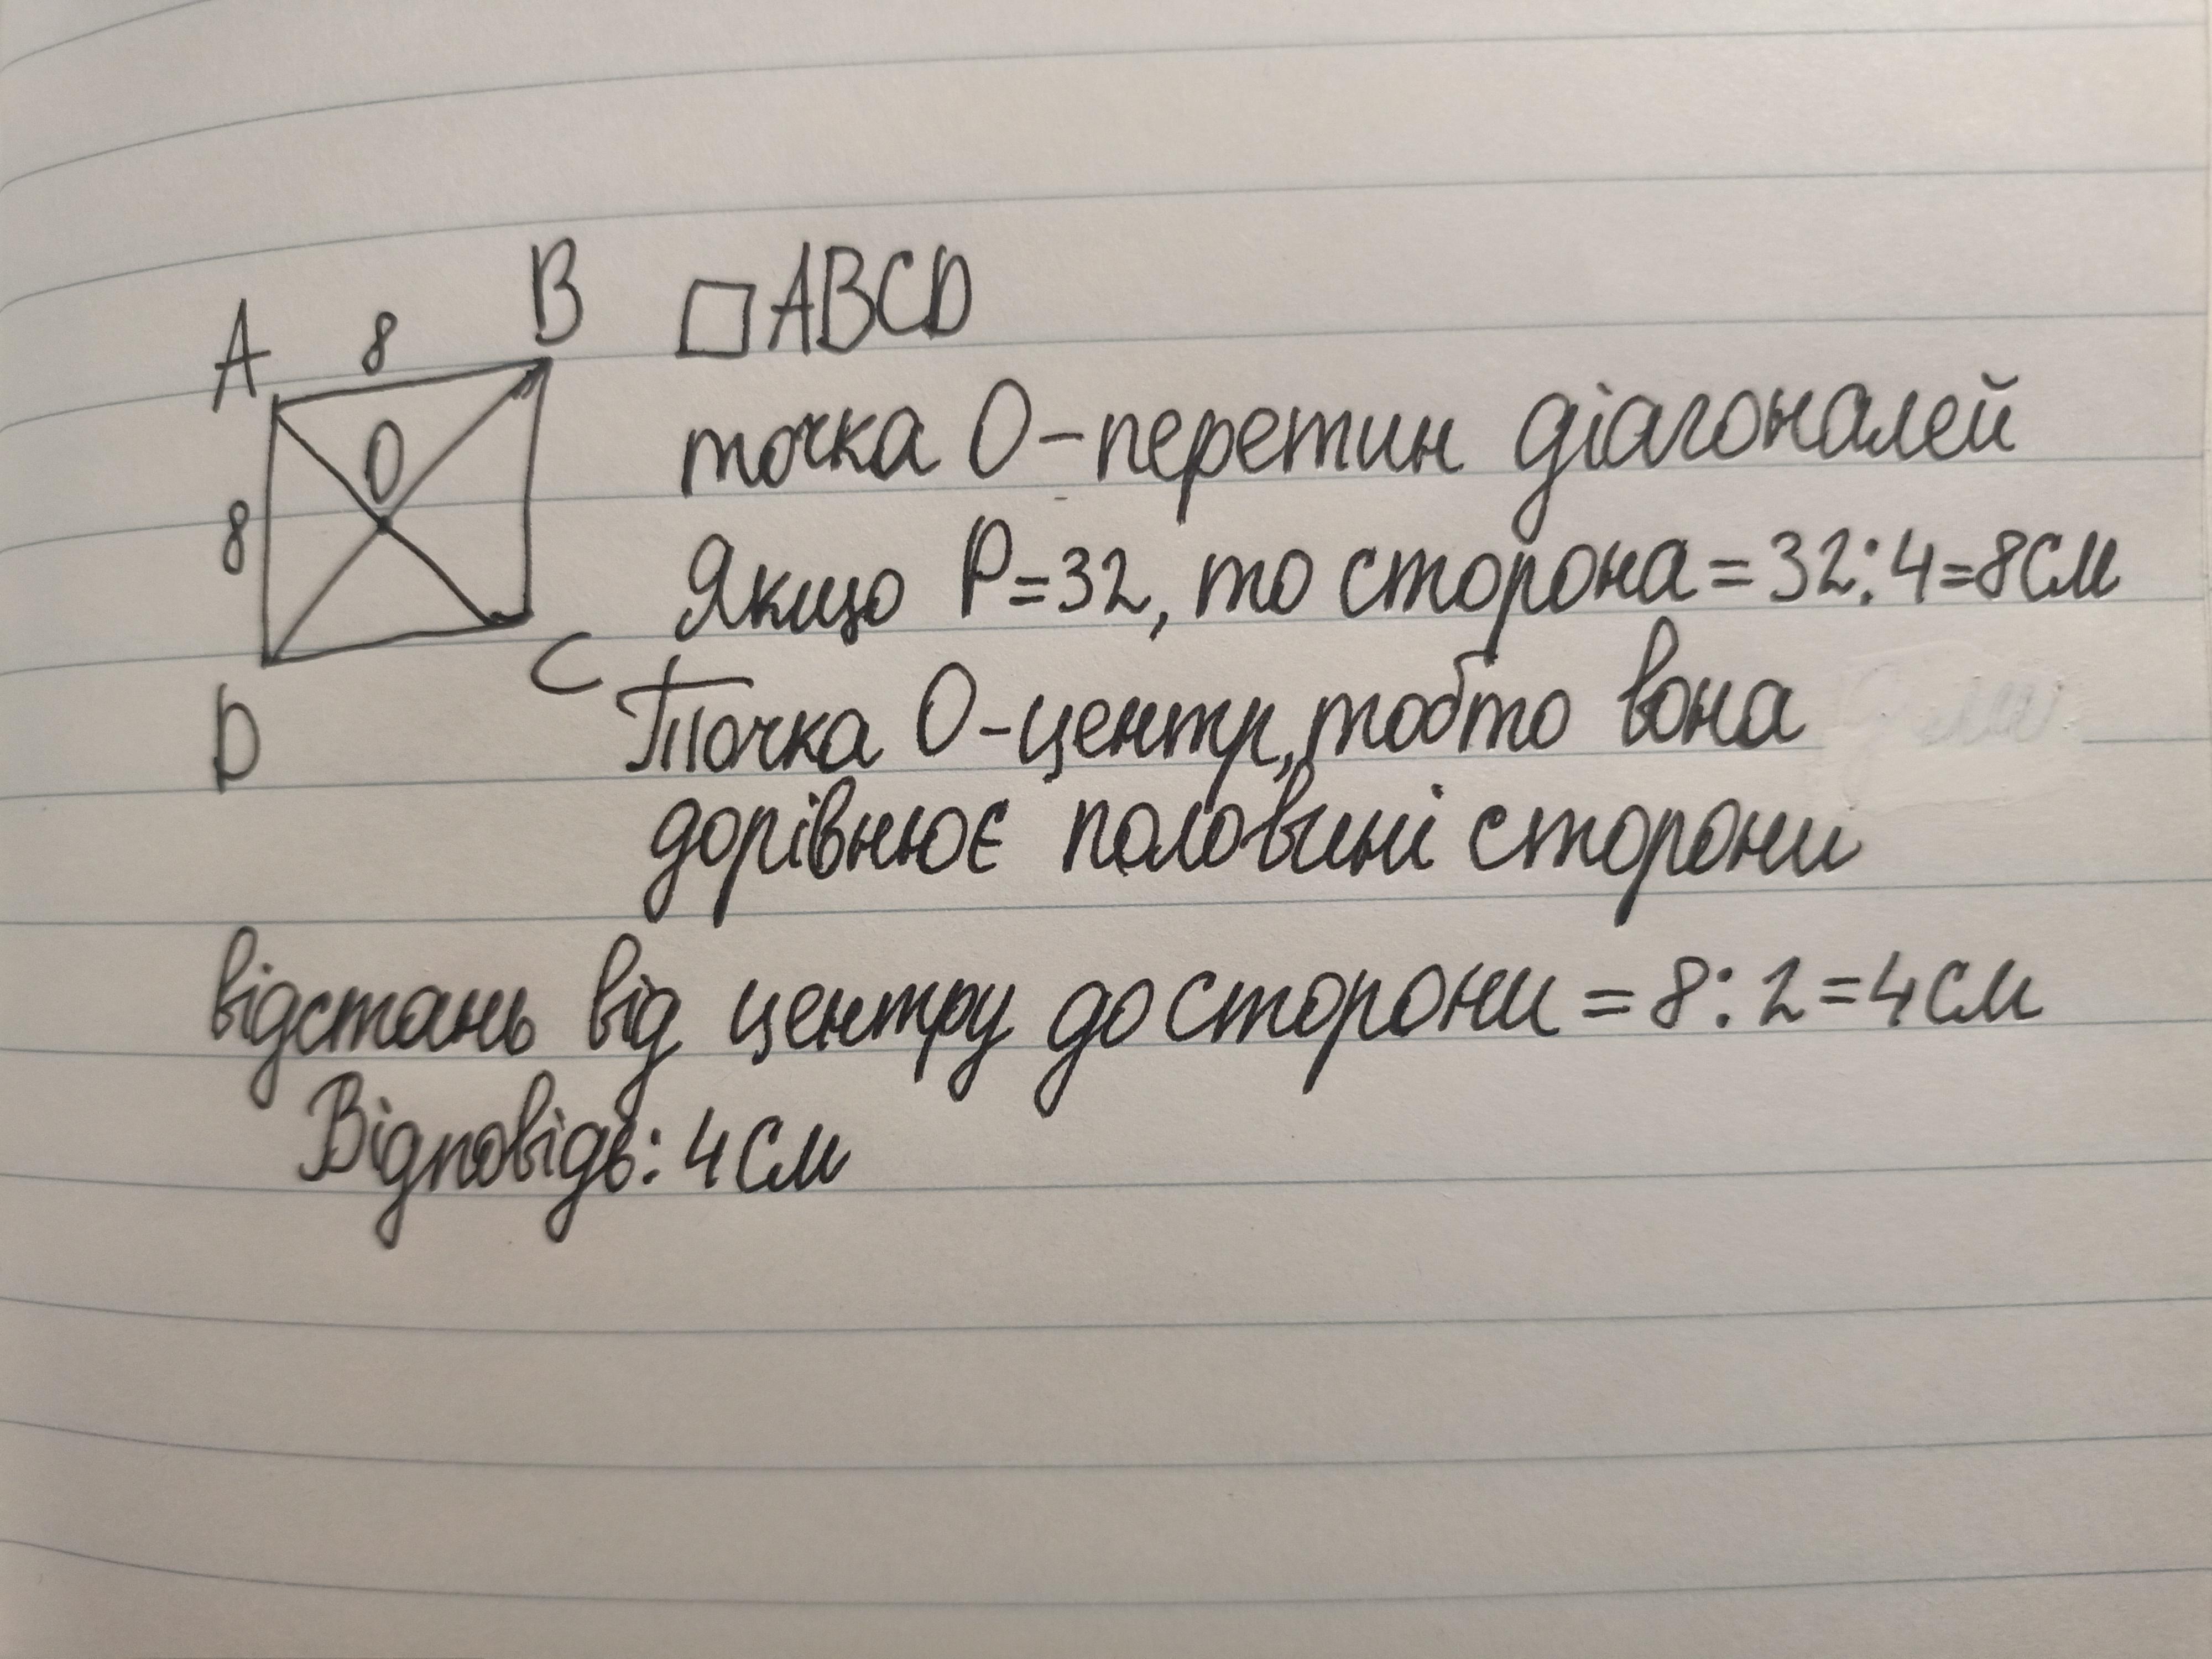 A 8 B
8 O
D C
□ABCD
точка O-перетин діагоналей
Якщо P=32, то сторона=32:4=8см
Точка O-центр, тобто вона
дорівнює половині сторони
відстань від центру до сторони = 8:2=4см
Відповідь: 4см